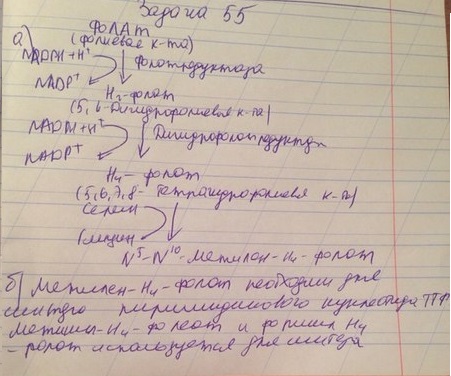 Задача 55
а) ФОЛАТ
(фолиевая к-та)
NADPH+H⁺
фолатредуктаза
NADP⁺
H₂-фолат
(5,6-Дигидрофолиевая к-та)
NADPH+H⁺
Дигидрофолатредуктаза
NADP⁺
H₄-фолат
(5,6,7,8-Тетрагидрофолиевая к-та)
Серин
Глицин
N⁵-N¹⁰-метилен-H₄-фолат
б) Метилен-H₄-фолат необходим для
синтеза пиримидинового нуклеотида
Метенил-H₄-фолат и формил H₄
-фолат используется для синтеза